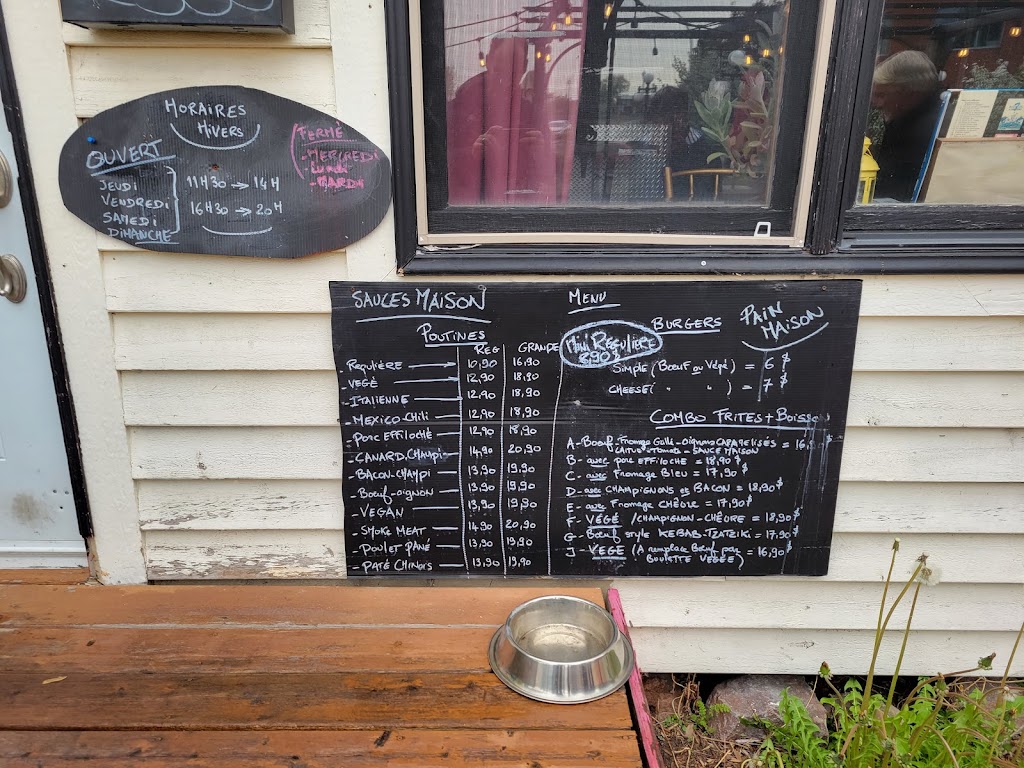 HORAIRES
HIVERS
OUVERT
JEUDI
VENDREDI
SAMEDI
DIMANCHE
11H30 → 14H
16H30 → 20H
FERMÉ
- MERCREDI
- Lundi
- MARDI
SAUCES MAISON
POUTINES
REG GRANDE
Régulière 10,90 16,90
- VEGÉ 12,90 18,90
- ITALIENNE 12,90 18,90
- MEXICO-CHILI 12,90 18,90
- PORC EFFILOCHÉ 12,90 18,90
- CANARD, CHAMPI 14,90 20,90
- BACON-CHAMPI 13,90 19,90
- Bœuf-oignon 13,90 19,90
- VEGAN 13,90 19,90
- SMOKE MEAT 14,90 20,90
- POULET PANÉ 13,90 19,90
- PATÉ CHINOIS 13,90 19,90
MENU
MINI RÉGULIÈRE
8,90 $
BURGERS
PAIN
MAISON
SIMPLE (Bœuf ou Végé) = 6 $
CHEESE ( " " ) = 7 $
COMBO FRITES + Boisso
A - Bœuf - Fromage Grillé - Oignons CARAMELISÉS = 16,
LAITUE - Tomate - SAUCE MAISON
B - avec porc EFFILOCHÉ = 18,90 $
C - avec Fromage BLEU = 17,90 $
D - avec CHAMPIGNONS et BACON = 18,90 $
E - avec Fromage CHÈVRE = 17,90 $
F - VÉGÉ / CHAMPIGNON - CHÈVRE = 18,90 $
G - Bœuf style KEBAB-TZATZIKI = 17,90 $
J - VEGE (A remplace Bœuf par = 16,90 $
BOULETTE VÉGÉE)